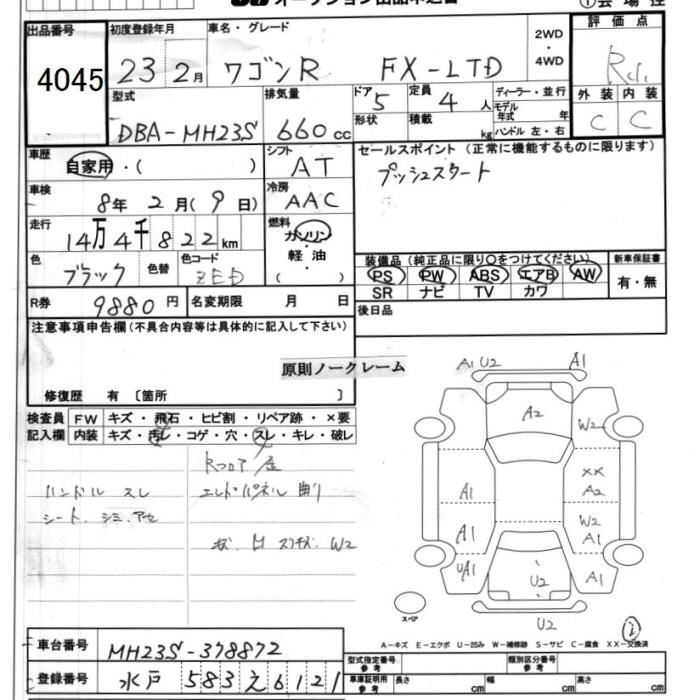 出品番号
4045
初度登録年月
23 2月
車名・グレード
ワゴンR FX-LTD
2WD
・
4WD
評価点
外装 内装
C C
型式
DBA-MH23S
排気量
660 cc
ドア 5
形状
定員 4 人
積載 kg
ディーラー・並行
モデル年式 年
ハンドル 左・右
車歴
自家用・( )
シフト
AT
セールスポイント (正常に機能するものに限ります)
プッシュスタート
車検
8年 2月(9日)
冷房
AAC
走行
14万4千822km
燃料
ガソリン
・
軽油
( )
色
ブラック
色替
色コード
ZED
装備品 (純正品に限り○をつけてください)
PS PW ABS エアB AW
SR ナビ TV カワ
新車保証書
有・無
R券 9880円
名変期限 月 日
後日品
注意事項申告欄(不具合内容等は具体的に記入して下さい)
原則ノークレーム
修復歴 有 〔箇所 〕
検査員記入欄
FW キズ・飛石・ヒビ割・リペア跡・×要
内装 キズ・汚レ・コゲ・穴・スレ・キレ・破レ
ハンドル スレ
エンドパネル 曲り
W2
A1 U2 A1
A2
W2
XX
A2
A1
W2
A1
A1
UA1
A1
U2
U2
スペア
A-キズ E-エクボ U-凹み W-補修跡 S-サビ C-腐食 XX-交換済
車台番号
MH23S-378872
登録番号
水戸 583 え 6121
型式指定番号
参考
類別区分番号
参考
車庫証明用
参考
長さ cm
幅 cm
高さ cm